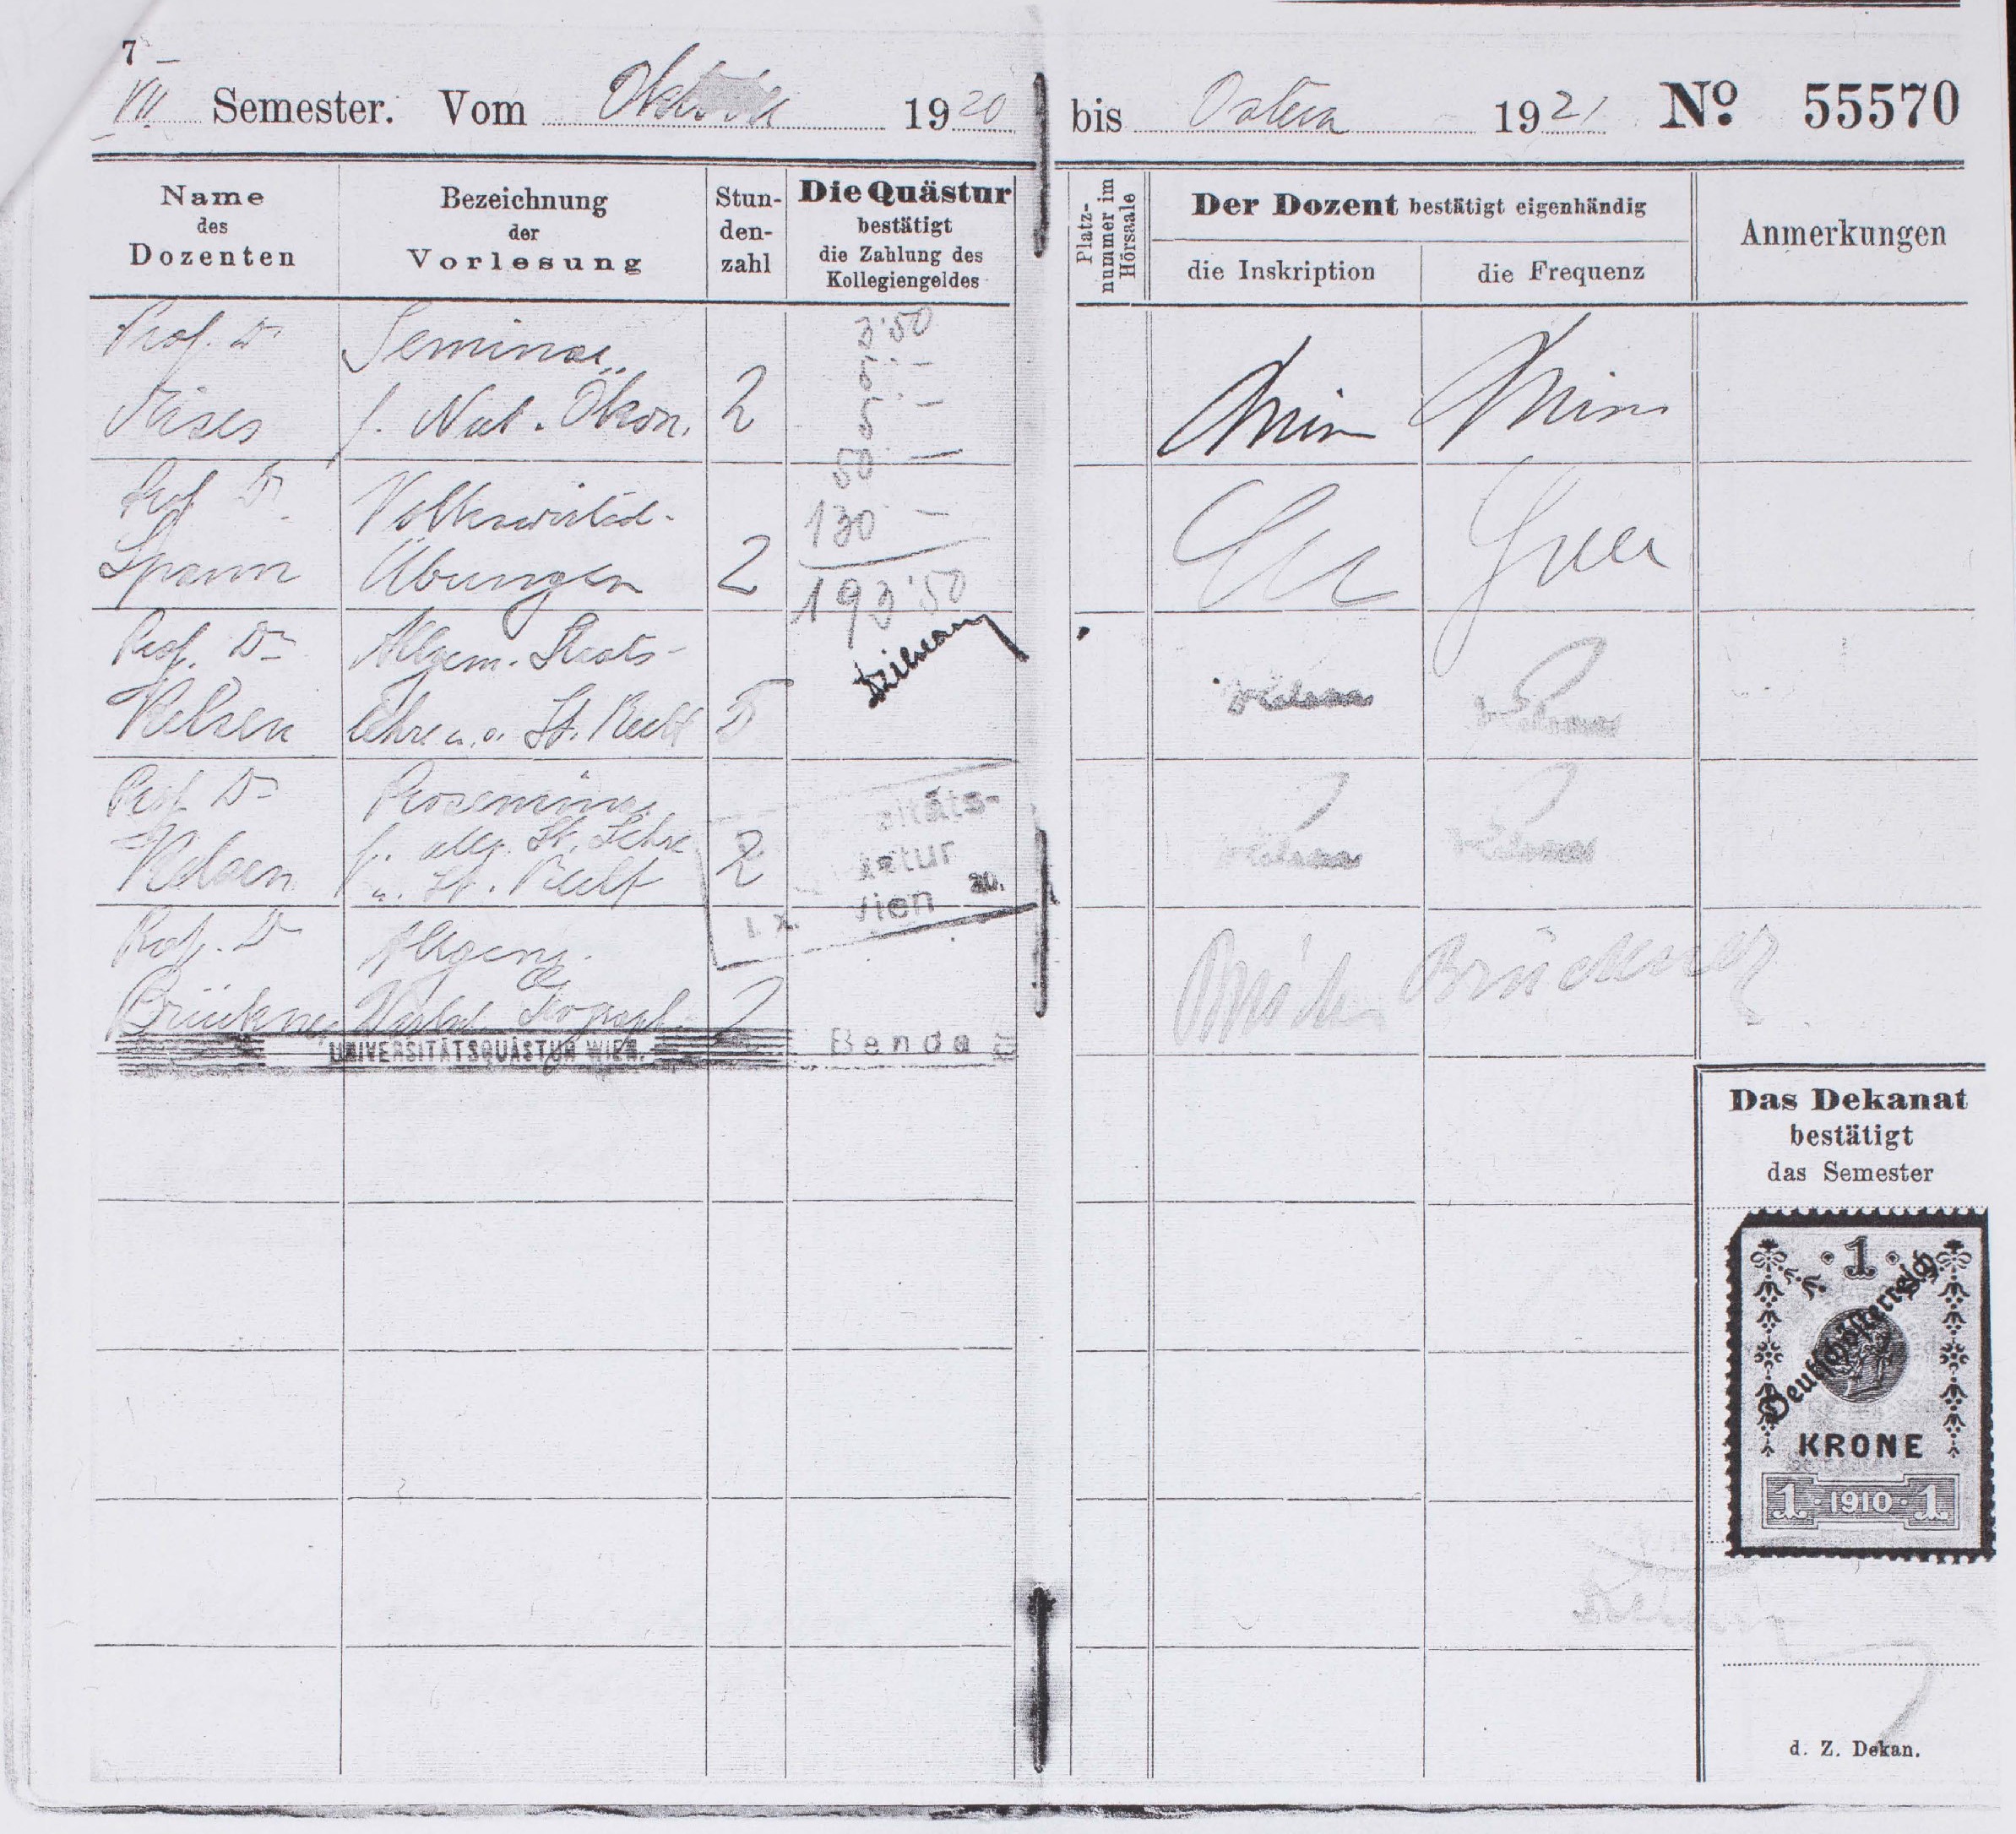 7
VII. Semester. Vom Oktober 1920 bis Ostern 1921 No 55570
Name
des
Dozenten
Bezeichnung
der
Vorlesung
Stun-
den-
zahl
Die Quästur
bestätigt
die Zahlung des
Kollegiengeldes
Platz-
nummer im
Hörsaale
Der Dozent bestätigt eigenhändig
die Inskription
die Frequenz
Anmerkungen
Prof. Dr
Mises
Seminar
f. Nat. Ökon.
2
3·50
5·—
5·—
50 —
130 —
193·50
Mises
Mises
Prof Dr
Spann
Volkswirtsch.
Übungen
2
Prof. Dr
Kelsen
Allgem. Staats-
lehre u. ö. St. Recht
5
Kelsen
Kelsen
Prof Dr
Kelsen
Proseminar
f. allg. St. Lehre
u. St. Recht
2
Kelsen
Kelsen
sitäts-
stur
Wien 20.
I. X.
Prof. Dr
Brückner
Allgem.
2
Brückner
UNIVERSITÄTSQUÄSTUR WIEN.
Benda
Das Dekanat
bestätigt
das Semester
1
Deutschösterreich
KRONE
1 · 1910 · 1
d. Z. Dekan.